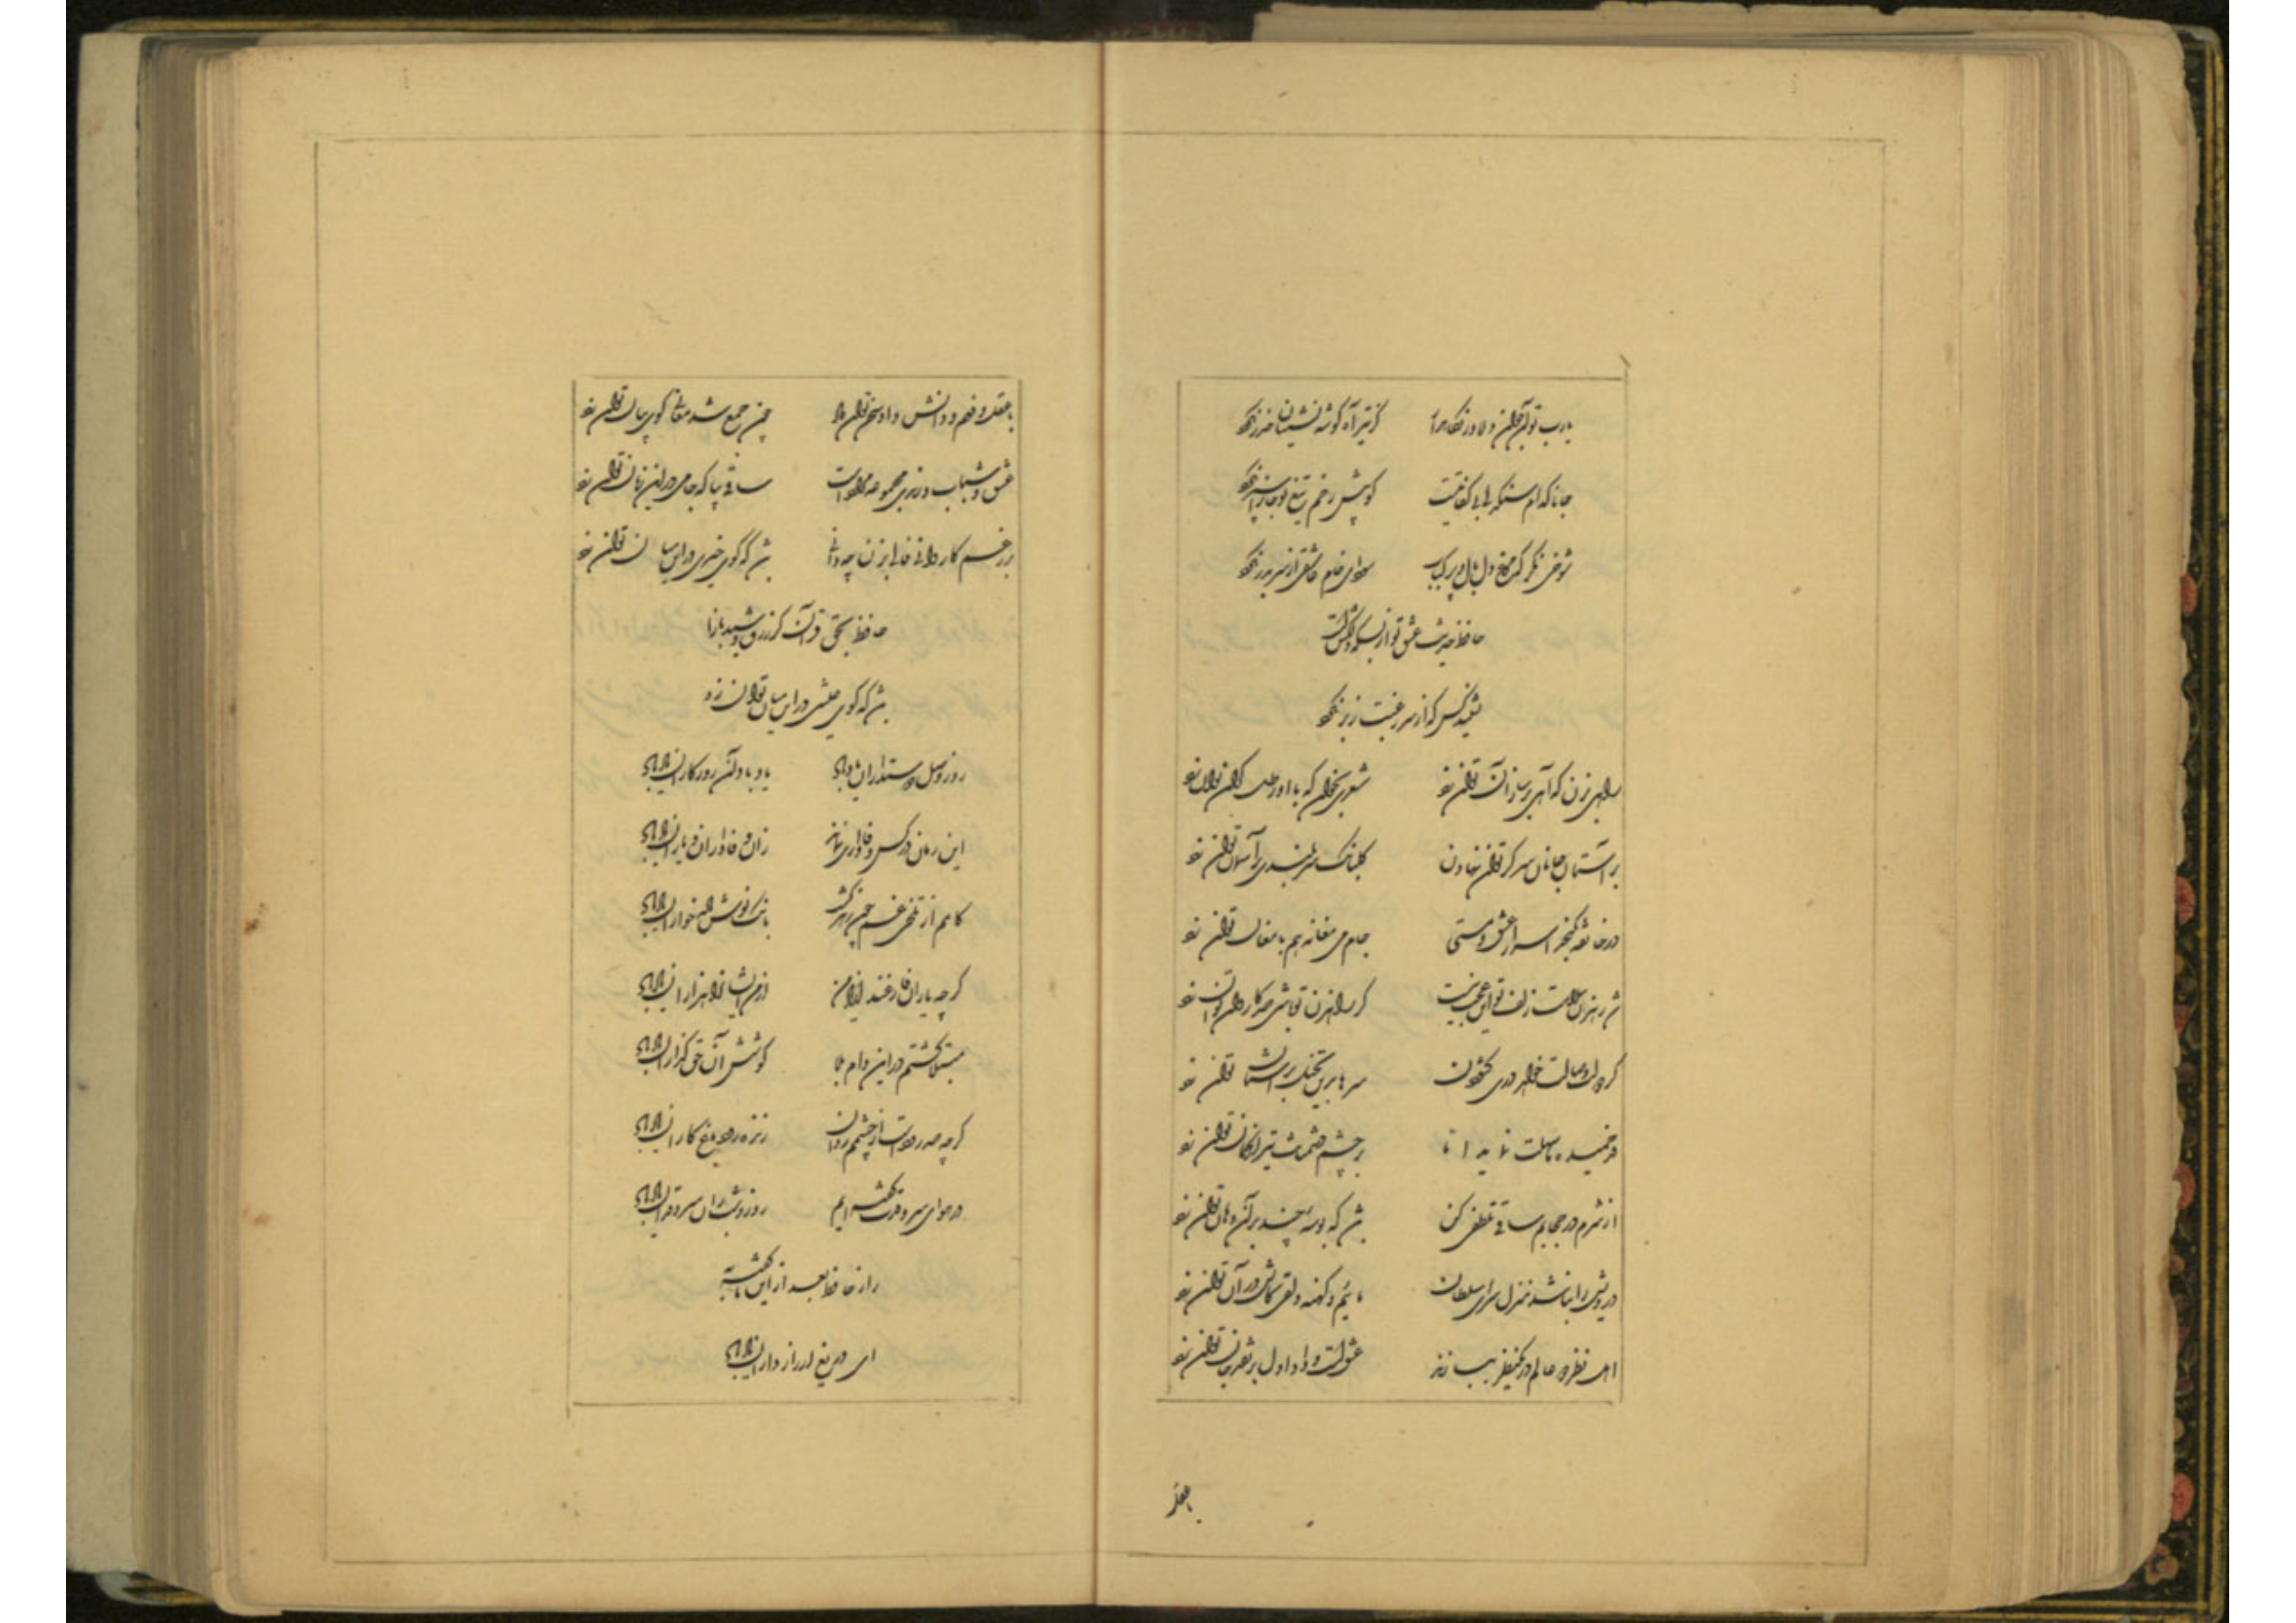 یارب تو آن جوان دلاور نگاهدار کز تیر آه گوشه نشینان حذر نکرد
جانا کدام سنگدل بی کفایتست کو پیش زخم تیغ تو جانرا سپر نکرد
شوخی نگر که مرغ دل بال و پر کباب سودای خام عاشقی از سر بدر نکرد
حافظ حدیث عشق تو از بسکه دلکش است
نشنید کس که از سر رغبت زبر نکرد
راهی بزن که آهی بر ساز آن توان زد شعری بخوان که با او رطل گران توان زد
بر آستان جانان سر گر توان نهادن گلبانگ سربلندی بر آسمان توان زد
در خانقه نگنجد اسرار عشق و مستی جام می مغانه هم با مغان توان زد
شد رهزن سلامت زلف تو این عجب نیست گر راهزن تو باشی صد کاروان توان زد
گر دولت وصالت خواهد دری گشودن سرها بدین تخیل بر آستان توان زد
قد خمیده ما سهلت نماید اما بر چشم دشمنان تیر از کمان توان زد
از شرم در حجابم ساقی تلطفی کن شد که بوسه چند بر آن دهان توان زد
درویش را نباشد منزل سرای سلطان مائیم و کهنه دلقی کاتش در آن توان زد
اهل نظر دو عالم در یک نظر ببازند عشق است و داو اول بر نقد جان توان زد
با عقل
با عقل و فهم و دانش داد سخن توان داد چون جمع شد معانی گوی بیان توان زد
عشق و شباب و رندی مجموعه مرادست ساقی بیا که جامی در این زمان توان زد
حافظ بحق قرآن کز زرق و شید بازا
شد که گوی عیشی در این میان توان زد
روز وصل دوستداران یاد باد یاد باد آن روزگاران یاد باد
این زمان در کس وفاداری نماند زان وفاداران و یاران یاد باد
کامم از تلخی غم چون زهر گشت بانگ نوش باده خواران یاد باد
گرچه یاران فارغند از یاد من از من ایشانرا هزاران یاد باد
مبتلا گشتم در این دام بلا کوشش آن حق گذاران یاد باد
گرچه صد رودست از چشمم روان زنده رود و باغ کاران یاد باد
در هوای سرو قدت گشته ایم روز و شب آن سرو قدان یاد باد
راز حافظ بعد از این ناگفته به
ای دریغ از رازداران یاد باد